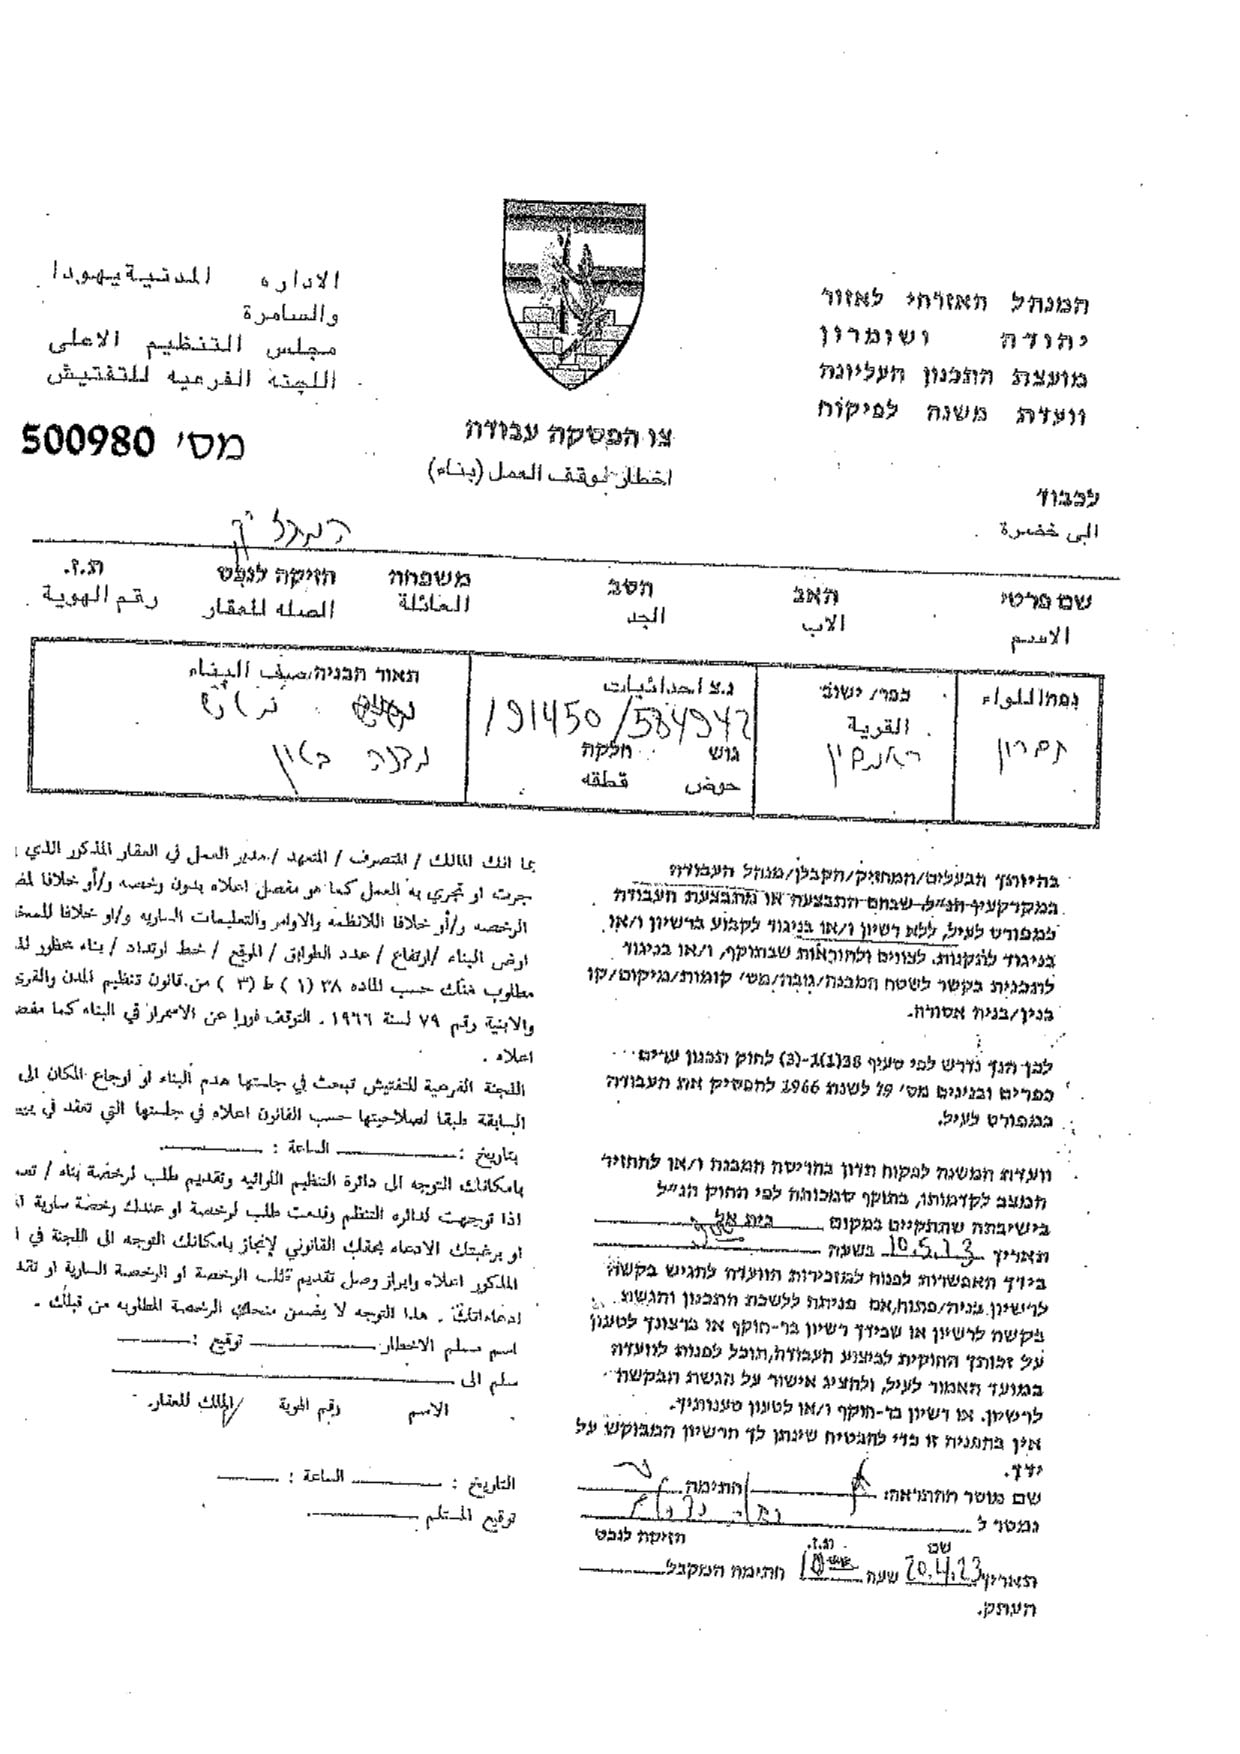 המנהל האזרחי לאזור
יהודה ושומרון
מועצת התכנון העליונה
וועדת משנה לפיקוח
الاداره المدنية يهودا
والسامرة
مجلس التنظيم الاعلى
اللجنة الفرعيه للتفتيش
צו הפסקה עבודה
اخطار لوقف العمل (بناء)
מס׳ 500980
לכבוד
الى حضرة
המחזיק
שם פרטי האב הסב משפחה הזיקה לנכס ת.ז.
الاسم الاب الجد العائلة الصله للعقار رقم الهوية
נפה/اللواء
כפר/ישוב
القرية
נ.צ احداثيات
191450/584942
גוש חלקה
حوض قطعه
תאור הבניה/صيف البناء
בהיותך הבעלים/המחזיק/הקבלן/מנהל העבודה
במקרקעין הנ״ל שבהם התבצעה או מתבצעת העבודה
כמפורט לעיל, ללא רשיון ו/או בניגוד לקבוע ברשיון ו/או
בניגוד לתקנות, לצווים ולהוראות שבתוקף, ו/או בניגוד
לתכנית בקשר לשטח המבנה/גובה/מס׳ קומות/מיקום/קו
בנין/בניה אסורה.
לכן הנך נדרש לפי סעיף 38(1)ג-(3) לחוק תכנון ערים
כפרים ובנינים מס׳ 79 לשנת 1966 להפסיק את העבודה
כמפורט לעיל.
וועדת המשנה לפקוח תדון בהריסת המבנה ו/או להחזיר
המצב לקדמותו, בתוקף סמכותה לפי החוק הנ״ל
בישיבתה שתתקיים במקום בית אל
תאריך 10.5.23 בשעה
בידך האפשרות לפנות למזכירות הוועדה להגיש בקשה
לרשיון בניה/פתוח, אם פנית ללשכת התכנון והגשת
בקשה לרשיון או שבידך רשיון בר-תוקף או ברצונך לטעון
על זכותך החוקית לביצוע העבודה, תוכל לפנות לוועדה
במועד האמור לעיל, ולהציג אישור על הגשת הבקשה
לרשיון, או רשיון בר-תוקף ו/או לטעון טענותיך.
אין בהפניה זו כדי להבטיח שינתן לך הרשיון המבוקש על
ידך.
שם מוסר ההתראה: חתימה
נמסר ל
שם ת.ז. הזיקה לנכס
תאריך 20.4.23 שעה חתימה המקבל
העתק.
بما انك المالك / المتصرف / المتعهد / مدير العمل في العقار المذكور الذي
جرت او تجري به العمل كما هو مفصل اعلاه بدون رخصه و/أو خلافا
الرخصه و/أو خلافا للانظمه والاوامر والتعليمات الساريه و/او خلافا
ارض البناء / ارتفاع / عدد الطوابق / الموقع / خط ارتداد / بناء محظور
مطلوب منك حسب الماده ٣٨ (١) ط (٣) من قانون تنظيم المدن والقرى
والابنية رقم ٧٩ لسنة ١٩٦٦. التوقف فورا عن الاستمرار في البناء كما
اعلاه.
اللجنة الفرعية للتفتيش تبحث في جلستها هدم البناء او ارجاع المكان الى
السابقة طبقا لصلاحيتها حسب القانون اعلاه في جلستها التي تعقد في
بتاريخ : الساعة :
بامكانك التوجه الى دائرة التنظيم اللوائيه وتقديم طلب لرخصة بناء /
اذا توجهت لدائره التنظم وقدمت طلب لرخصة او عندك رخصة سارية
او برغبتك الادعاء بحقك القانوني لإنجاز بامكانك التوجه الى اللجنة في
المذكور اعلاه وابراز وصل تقديم طلب الرخصة او الرخصة السارية او
ادعاءاتك. هذا التوجه لا يضمن منحك الرخصة المطلوبه من قبلك.
اسم مسلم الاخطار توقيع :
سلم الى
الاسم رقم الهوية المالك للعقار.
التاريخ : الساعة :
توقيع المستلم